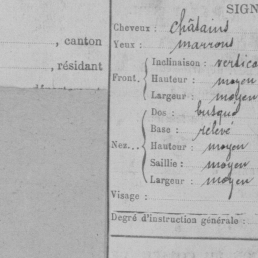 SIGN
Cheveux : châtains
, canton
Yeux : marrons
, résidant
Front. Inclinaison : vertica
Hauteur : moyen
Largeur : moyen
Dos : busqué
Base : relevé
Nez... Hauteur : moyen
Saillie : moyen
Largeur : moyen
Visage :
Degré d'instruction générale :